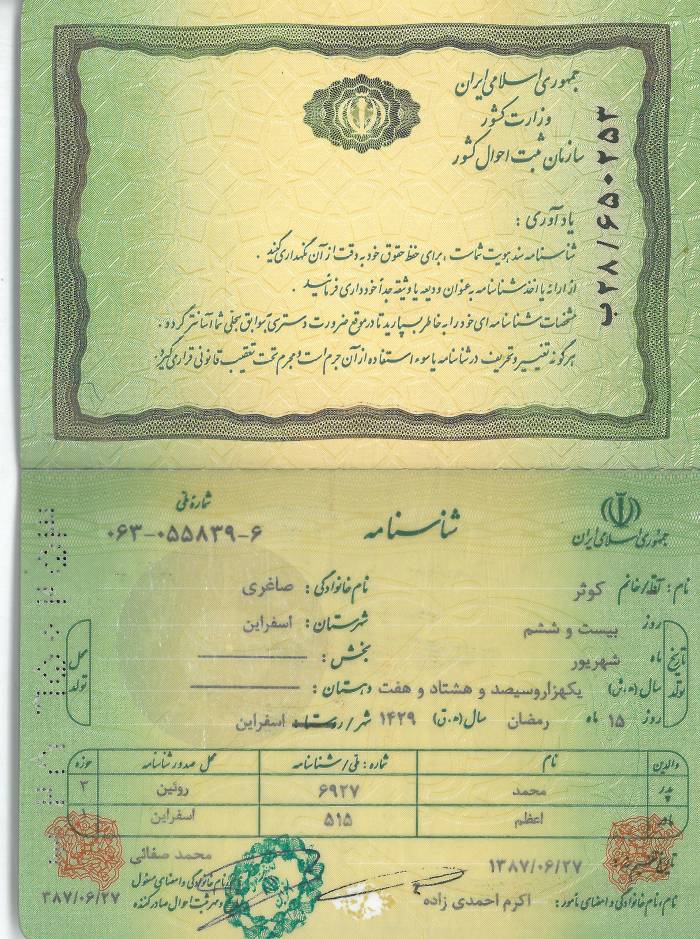 جمهوری اسلامی ایران
وزارت کشور
سازمان ثبت احوال کشور
ب۲۸/۶۵۰۲۵۲
یادآوری :
شناسنامه سند هویت شماست ، برای حفظ حقوق خود به دقت از آن نگهداری کنید .
از ارائه یا اخذ شناسنامه به عنوان ودیعه یا وثیقه جداً خودداری فرمائید .
مشخصات شناسنامه ای خود را به خاطر بسپارید تا در موقع ضرورت دسترسی به سوابق سجلی شما آسانتر گردد .
هرگونه تغییر و تحریف در شناسنامه یا سوء استفاده از آن جرم است و مجرم تحت تعقیب قانونی قرار می گیرد .
جمهوری اسلامی ایران
شناسنامه
شماره ملی
۰۶۳-۰۵۵۸۳۹-۶
نام : آقا/خانم کوثر
نام خانوادگی : صاغری
تاریخ تولد
روز بیست و ششم
شهرستان : اسفراین
محل تولد
ماه شهریور
بخش :
سال (ه.ش) یکهزاروسیصد و هشتاد و هفت
دهستان :
روز ۱۵ ماه رمضان سال (ه.ق) ۱۴۲۹
شهر/روستا: اسفراین
والدین نام شماره : ملی/شناسنامه محل صدور شناسنامه حوزه
پدر محمد ۶۹۲۷ روئین ۳
مادر اعظم ۵۱۵ اسفراین ۱
۱۳۸۷/۰۶/۲۷
محمد صفائی
نام،نام خانوادگی و امضای مامور: اکرم احمدی زاده
نام خانوادگی و امضای مسئول
و مهر ثبت احوال صادرکننده
۳۸۷/۰۶/۲۷